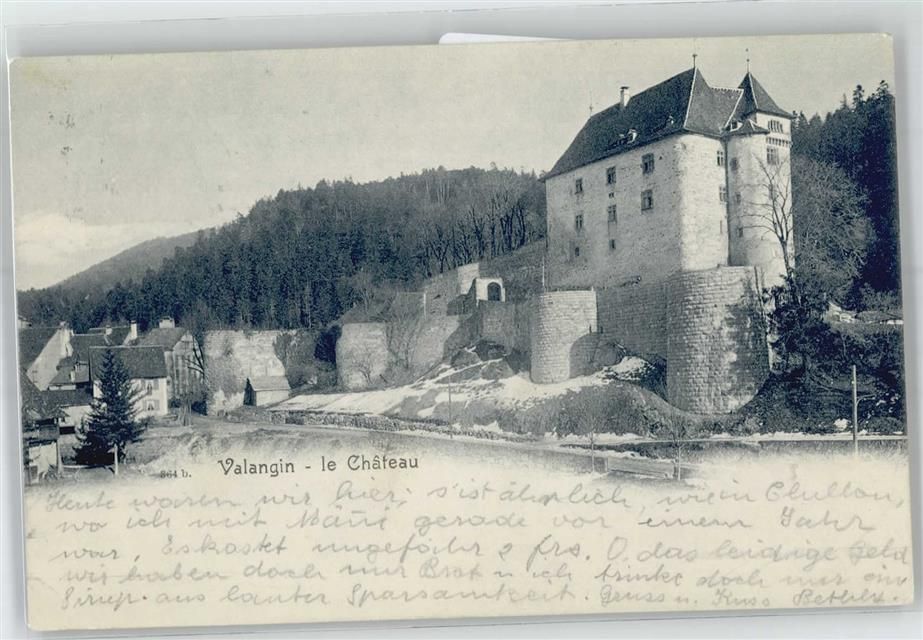 864 b. Valangin - le Château
Heute waren wir hier; s'ist ähnlich, wie in Chillon,
wo ich mit Mäni gerade vor einem Jahr
war. Es kostet ungefähr 2 frs. O das leidige Geld
wir haben doch nur Brot u ich trinke doch nur ein
Sirup aus lauter Sparsamkeit. Gruss u. Kuss